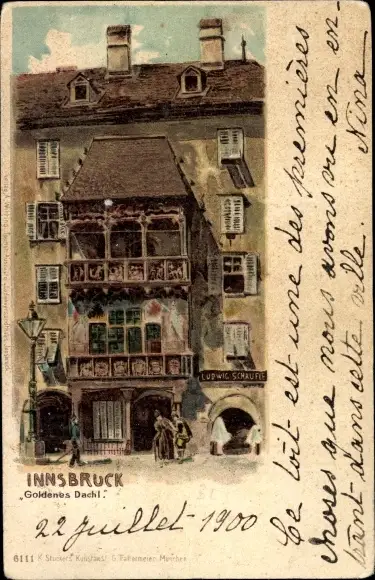 LUDWIG SCHAUFLE
INNSBRUCK
„Goldenes Dachl."
22 Juillet 1900
6111 K. Stücker's Kunstanst. G. Tüllermeier, München
Ce toit est une des premières
choses que nous avons vu en en-
trant dans cette ville.
Nina